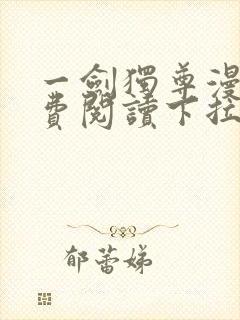 一劍獨尊漫
費閱讀下拉
郁蕾娣